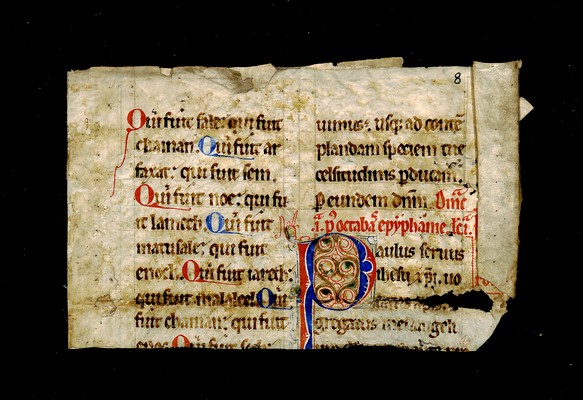 8
Qui fuit sale: qui fuit
chainan. Qui fuit ar
faxat: qui fuit sem.
Qui fuit noe: qui fu
it lamech. Qui fuit
matusale: qui fuit
enoch. Qui fuit iareth:
qui fuit malaleel. Qui
fuit chainan: qui fuit
enos. Qui fuit seth:
uimus: usq; ad contē
plandam speciem tue
celsitudinis ꝑducam̄.
ꝑ eundem dn̄m. Dn̄icᵃ
.i. p᾽ octabā epyphanie. lc̄i.
Paulus seruus
ihesu xp̄i. uo
gregatus in euangeli